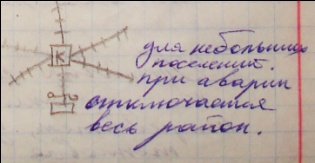 К
для небольших
поселений.
при аварии
отключается
весь район.